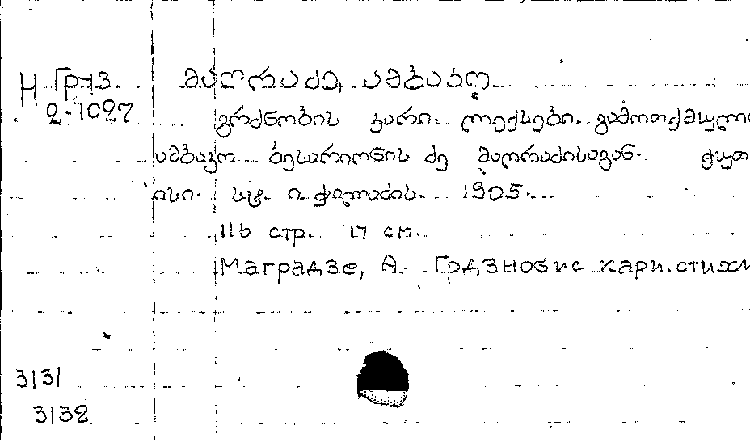 Н Груз.
2-1027
მაღრაძე, ამბაკო
გრძნობის ქარი. ლექსები. გამოთქმული
ამბაკო ბესარიონის ძე მაღრაძისაგან. ქუთ
აისი. სტ. ი. ქილაძის. 1905.
116 стр. 17 см.
Маградзе, А. Грдзнобис кари. стихи
3131
3132